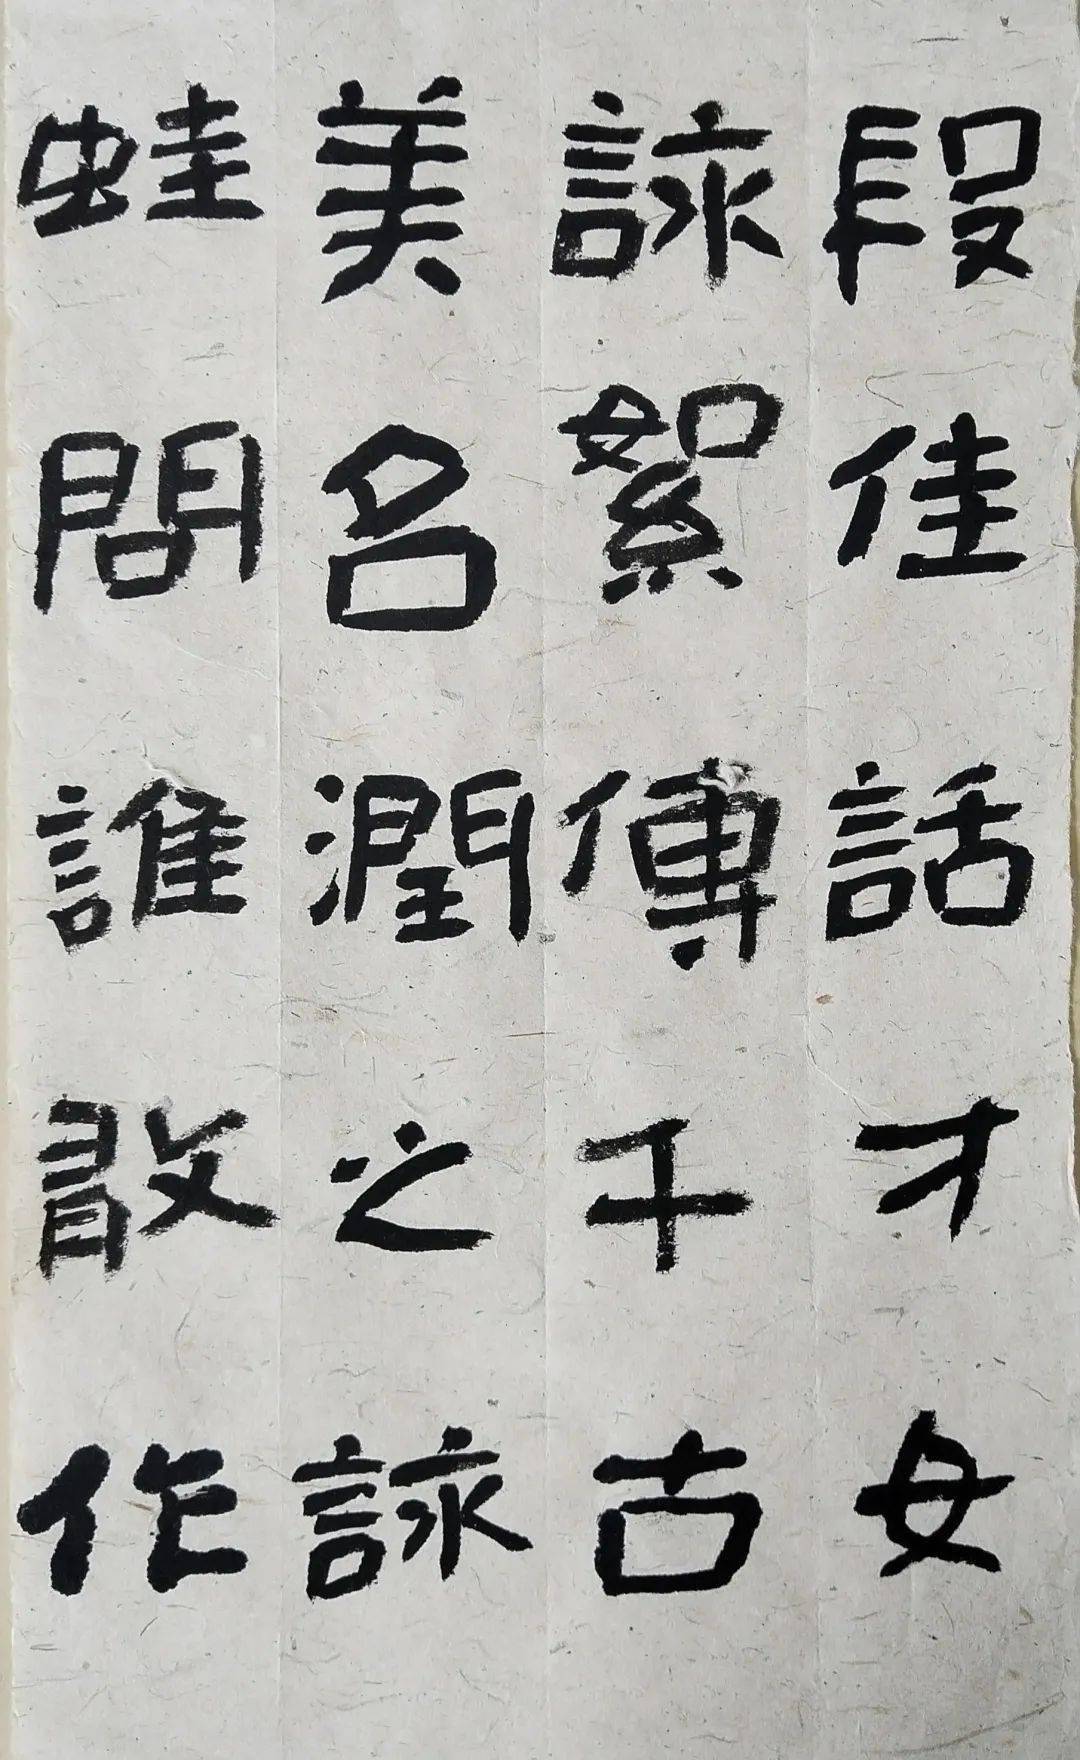 段佳話才女
詠絮傳千古
美名潤之詠
蛙問誰敢作